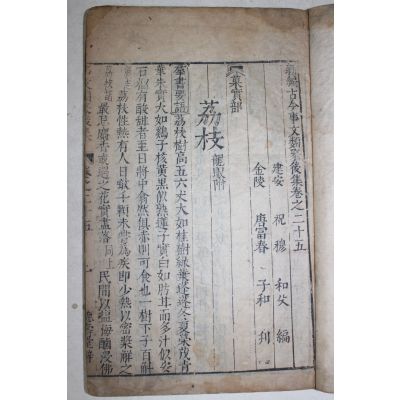 新編古今事文類聚後集卷之二十五
建安 祝穆 和父 編
金陵 唐富春 子和 刊
菓實部
荔枝 龍眼附
羣書要語荔枝樹高五六丈大如桂樹綠葉蓬蓬冬夏榮茂青
華朱實大如鷄子核黃黑似熟蓮子實白如肪甘而多汁似安
石榴有酸甜者至日將中翕然俱赤則可食也一樹下子百斛
荔枝性熱有人日啖千顆未嘗為疾即少熱以蜜漿解之
之花實盡落同上民間以鹽梅滷浸佛